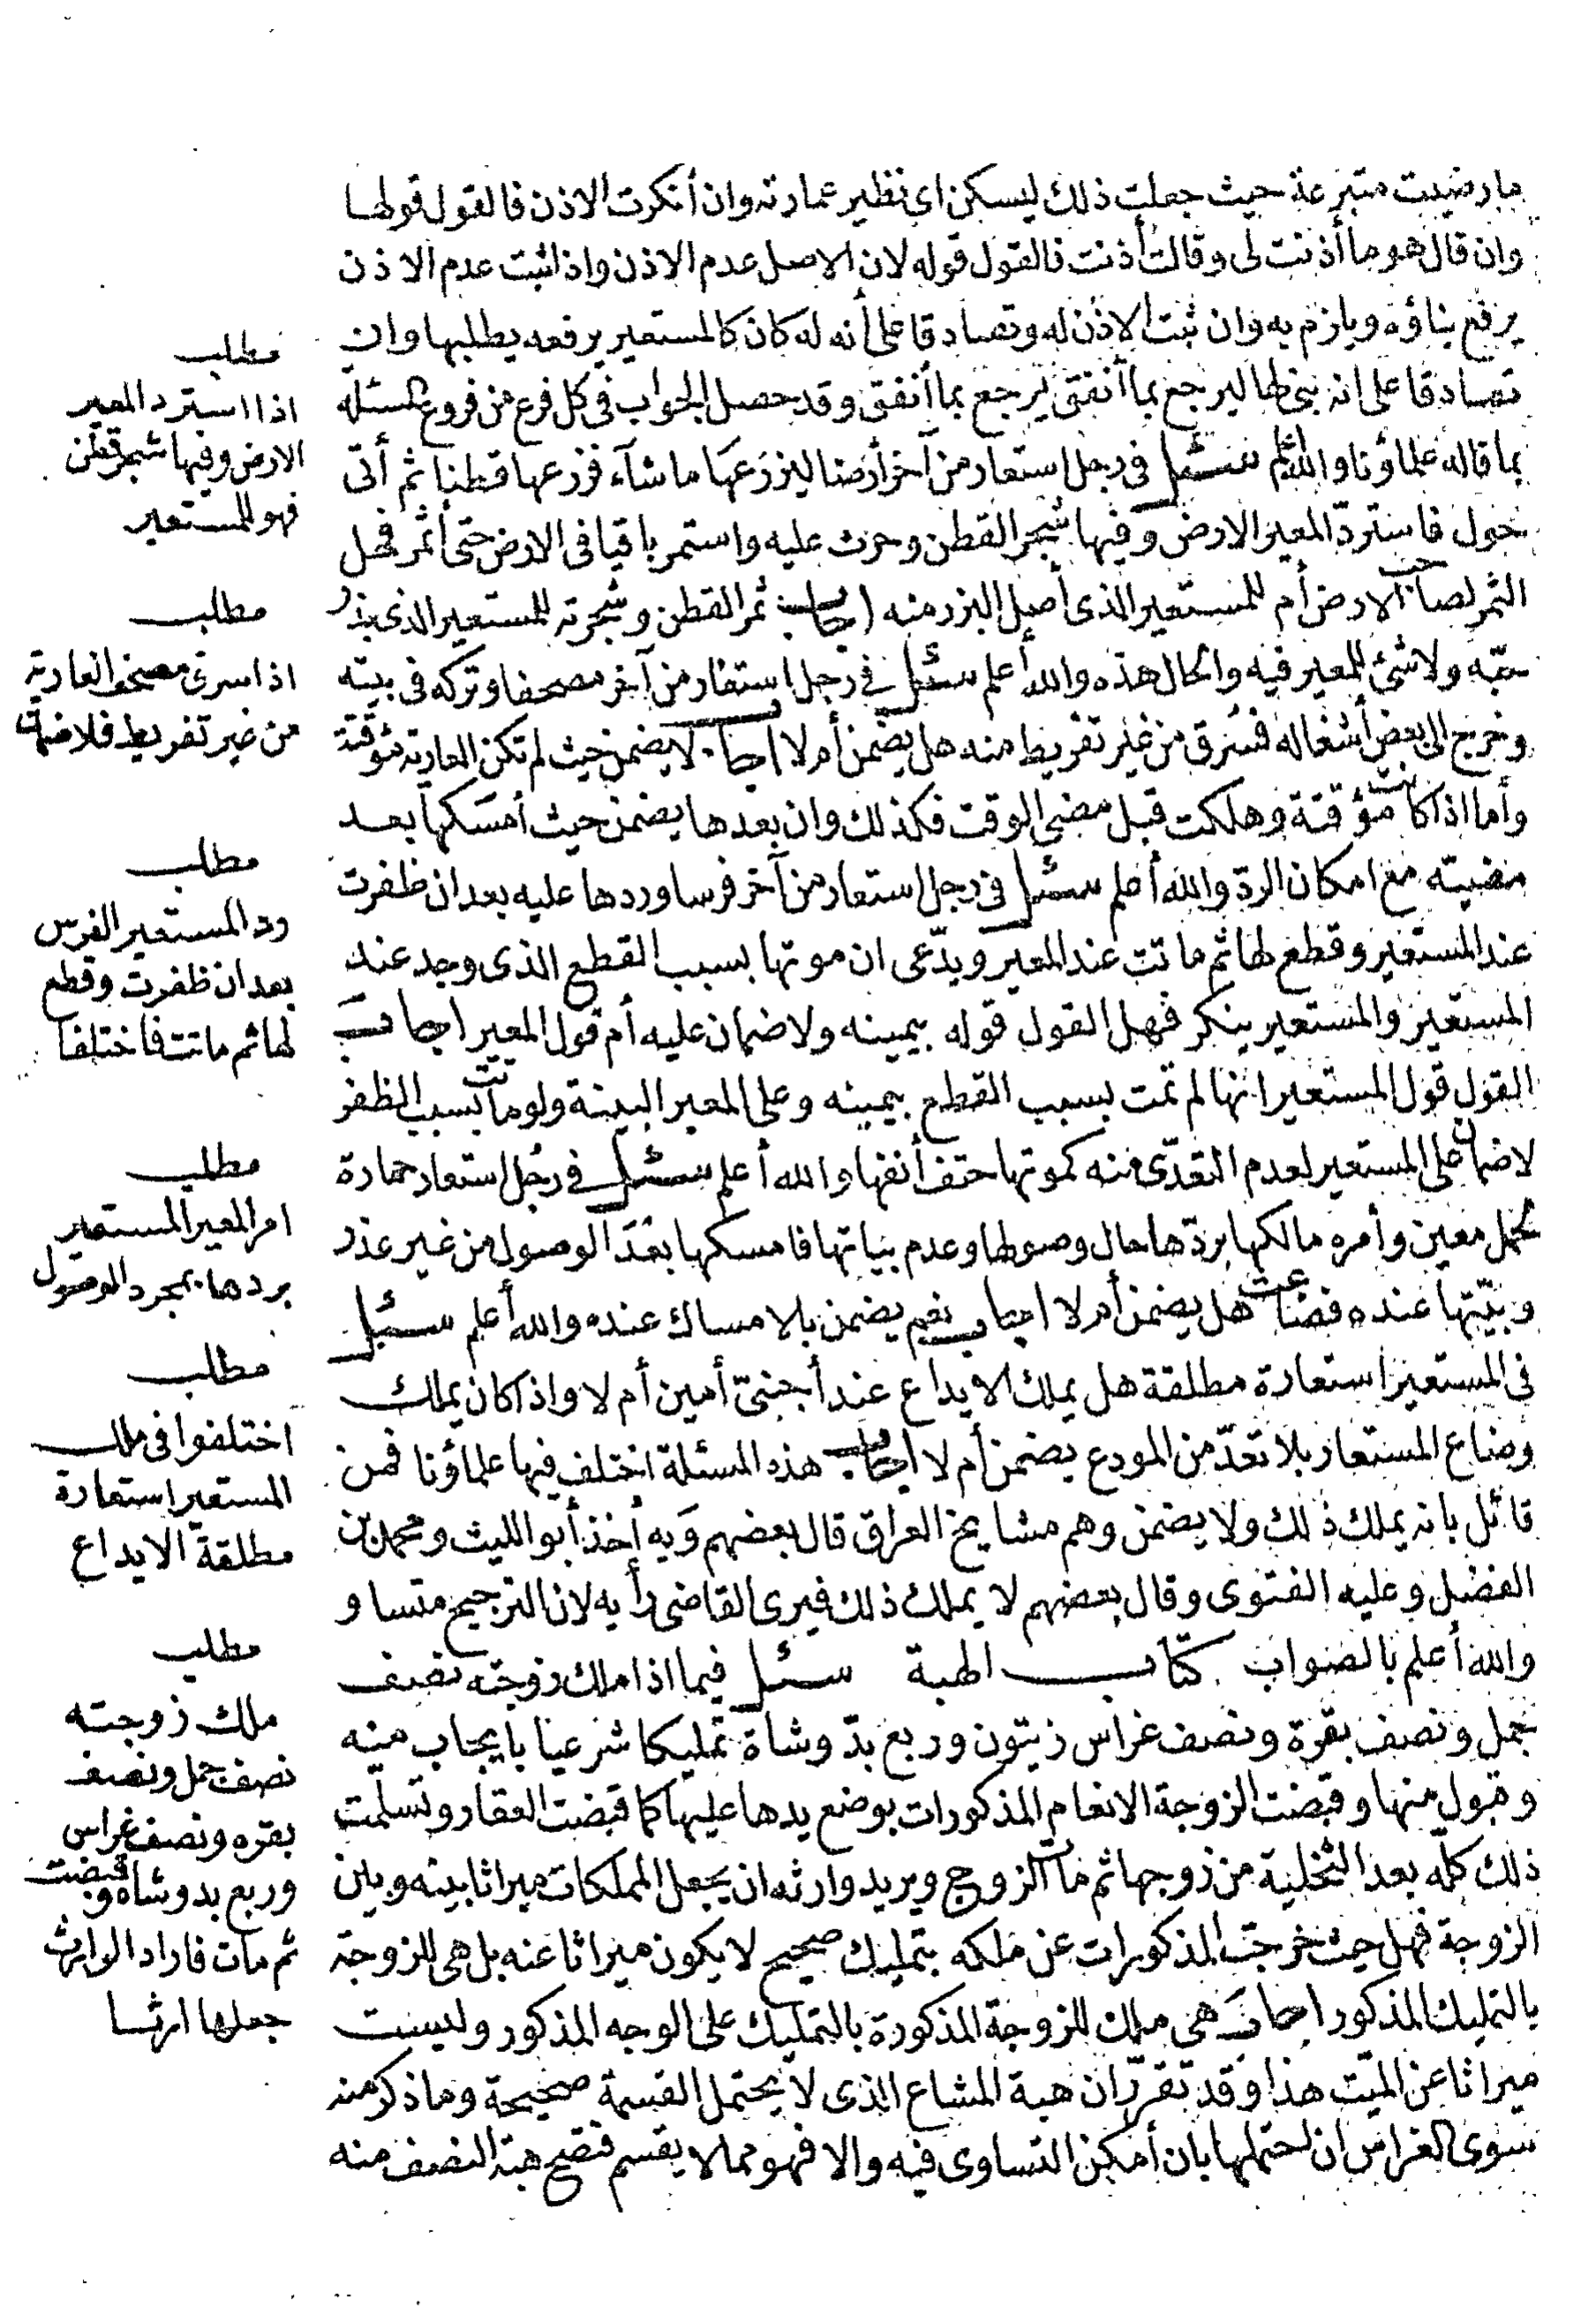 ما رضيت متبرعة حيث جعلت ذلك ليسكن اى نظير عمارته وان أنكرت الاذن فالقول قولها
وان قال هو ما أذنت لى وقالت أذنت فالقول قوله لان الاصل عدم الاذن واذا ثبت عدم الاذن
يرفع بناؤه ويلزم به وان ثبت الاذن له وتصادقا على أنه له كان كالمستعير يرفعه بطلبها وان
تصادقا على انه بنى لها ليرجع بما أنفق يرجع بما أنفق وقد حصل الجواب فى كل فرع من فروع المسئلة
بما قاله علماؤنا والله أعلم سئل فى رجل استعار من آخر أرضا ليزرعها ما شآء فزرعها قطنا ثم أتى
حول فاستردّ المعير الارض وفيها شجر القطن وحرث عليه واستمر باقيا فى الارض حتى أثمر فهل
الثمر لصاحب الارض أم للمستعير الذى أصل البزر منه أجاب ثمر القطن وشجرته للمستعير الذى بذر
حبّه ولا شئ للمعير فيه والحال هذه والله أعلم سئل فى رجل استعار من آخر مصحفا وتركه فى بيته
وخرج الى بعض أشغاله فسرق من غير تفريط منه هل يضمن أم لا اجاب لا يضمن حيث لم تكن العارية مؤقتة
وأما اذا كانت مؤقتة وهلكت قبل مضى الوقت فكذلك وان بعدها يضمن حيث أمسكها بعد
مضيّه مع امكان الردّ والله أعلم سئل فى رجل استعار من آخر فرسا وردها عليه بعد ان ظفرت
عند المستعير وقطع لها ثم ماتت عند المعير ويدّعى ان موتها بسبب القطع الذى وجد عند
المستعير والمستعير ينكر فهل القول قوله بيمينه ولا ضمان عليه أم قول المعير اجاب
القول قول المستعير انها لم تمت بسبب القطع بيمينه وعلى المعير البينة ولو ماتت بسبب الظفر
لا ضمان على المستعير لعدم التعدّى منه كموتها حتف أنفها والله أعلم سئل فى رجل استعار حمارة
لحمل معين وأمره مالكها بردّها حال وصولها وعدم بياتها فامسكها بعد الوصول من غير عذر
وبيّتها عنده فضاعت هل يضمن أم لا اجاب نعم يضمن بالامساك عنده والله أعلم سئل
فى المستعير استعارة مطلقة هل يملك الايداع عند أجنبىّ أمين أم لا واذا كان يملك
وضاع المستعار بلا تعدّ من المودع يضمن أم لا اجاب هذه المسئلة اختلف فيها علماؤنا فمن
قائل بانه يملك ذلك ولا يضمن وهم مشايخ العراق قال بعضهم وبه أخذ أبو الليث ومحمد بن
الفضل وعليه الفتوى وقال بعضهم لا يملك ذلك فيرى القاضى رأيه لان الترجيح متساو
والله أعلم بالصواب كتاب الهبة سئل فيما اذا ملك زوجته نصف
جمل ونصف بقرة ونصف غراس زيتون وربع بدّ وشاة تمليكا شرعيا بايجاب منه
وقبول منها وقبضت الزوجة الانعام المذكورات بوضع يدها عليها كما قبضت العقار وتسلمت
ذلك كلّه بعد التخلية من زوجها ثم مات الزوج ويريد وارثه ان يجعل المملكات ميراثا بينه وبين
الزوجة فهل حيث خرجت المذكورات عن ملكه بتمليك صحيح لا يكون ميراثا عنه بل هى للزوجة
بالتمليك المذكور اجاب هى ملك للزوجة المذكورة بالتمليك على الوجه المذكور وليست
ميراثا عن الميّت هذا وقد تقرّر ان هبة المشاع الذى لا يحتمل القسمة صحيحة وما ذكر منه
سوى الغراس ان احتملها بان أمكن التساوى فيه والا فهو مما لا يقسم فتصح هبة النصف منه
مطلب
اذا استرد المعير
الارض وفيها شجر قطن
فهو للمستعير
مطلب
اذا سرق مصحف العارية
من غير تفريط فلا ضمان
مطلب
رد المستعير الفرس
بعد ان ظفرت وقطع
لها ثم ماتت فاختلفا
مطلب
امر المعير المستعير
بردها بمجرد الوصول
مطلب
اختلفوا فى ملك
المستعير استعارة
مطلقة الايداع
مطلب
ملك زوجته
نصف جمل ونصف
بقره ونصف غراس
وربع بد وشاه وقبضت
ثم مات فاراد الوارث
جعلها ارثا